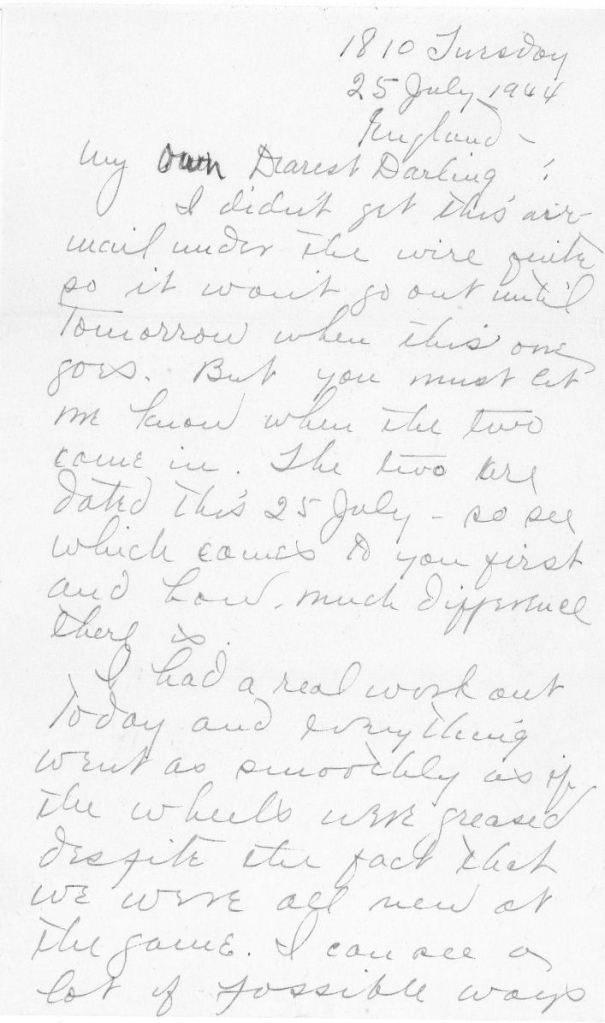 1810 Tuesday
25 July 1944
England -
My own Dearest Darling :
I didn't get this air-
mail under the wire quite
so it won't go out until
Tomorrow when this one
goes. But you must let
me know when the two
come in. The two are
dated this 25 July - so see
which comes to you first
and how much difference
there is.
I had a real work out
Today and everything
went as smoothly as if
the wheels were greased
despite the fact that
we were all new at
the game. I can see a
lot of possible ways